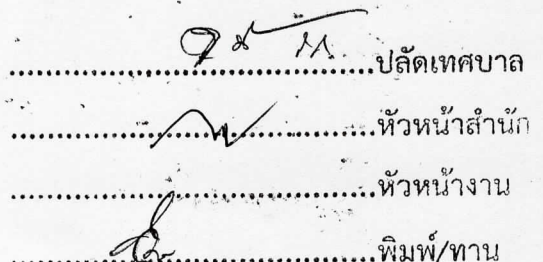 ....................ปลัดเทศบาล
....................หัวหน้าสำนัก
....................หัวหน้างาน
....................พิมพ์/ทาน